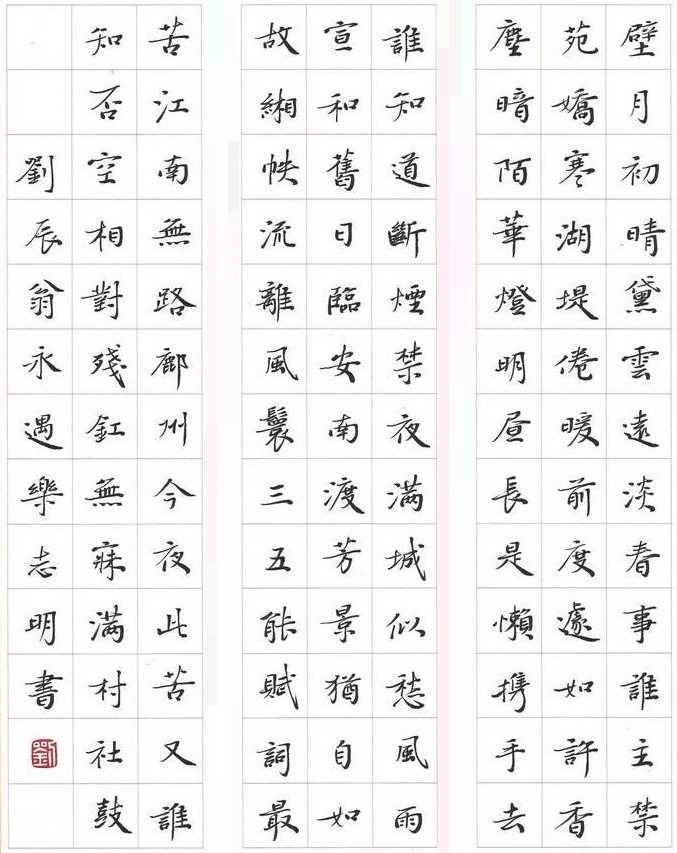 壁月初晴黛雲遠淡春事誰主禁
苑嬌寒湖堤倦暖前度遽如許香
塵暗陌華燈明昼長是懶携手去
誰知道斷煙禁夜满城似愁風雨
宣和舊日臨安南渡芳景猶自如
故緗帙流離風鬟三五能賦詞最
苦江南無路鄜州今夜此苦又誰
知否空相對殘釭無寐满村社鼓
劉辰翁永遇樂志明書
劉